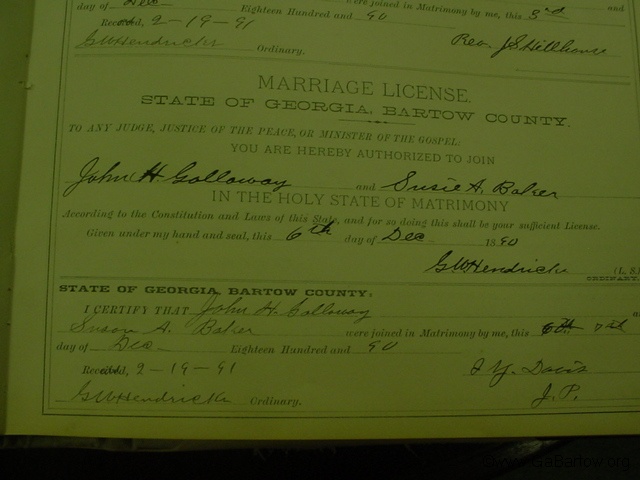 day of Dec Eighteen Hundred and 90 were joined in Matrimony by me, this 3rd and
Record, 2-19-91
GWHendricks Ordinary. Rev. J.S. Hillhouse
MARRIAGE LICENSE.
STATE OF GEORGIA, BARTOW COUNTY.
TO ANY JUDGE, JUSTICE OF THE PEACE, OR MINISTER OF THE GOSPEL:
YOU ARE HEREBY AUTHORIZED TO JOIN
John H Galloway and Susie A. Baker
IN THE HOLY STATE OF MATRIMONY
According to the Constitution and Laws of this State, and for so doing this shall be your sufficient License.
Given under my hand and seal, this 6th day of Dec 1890
GWHendricks (L. S.)
ORDINARY.
STATE OF GEORGIA, BARTOW COUNTY:
I CERTIFY THAT John H. Galloway
Susan A. Baker were joined in Matrimony by me, this 6th
day of Dec Eighteen Hundred and 90
Record, 2-19-91 Davis
GWHendricks Ordinary. J. P.